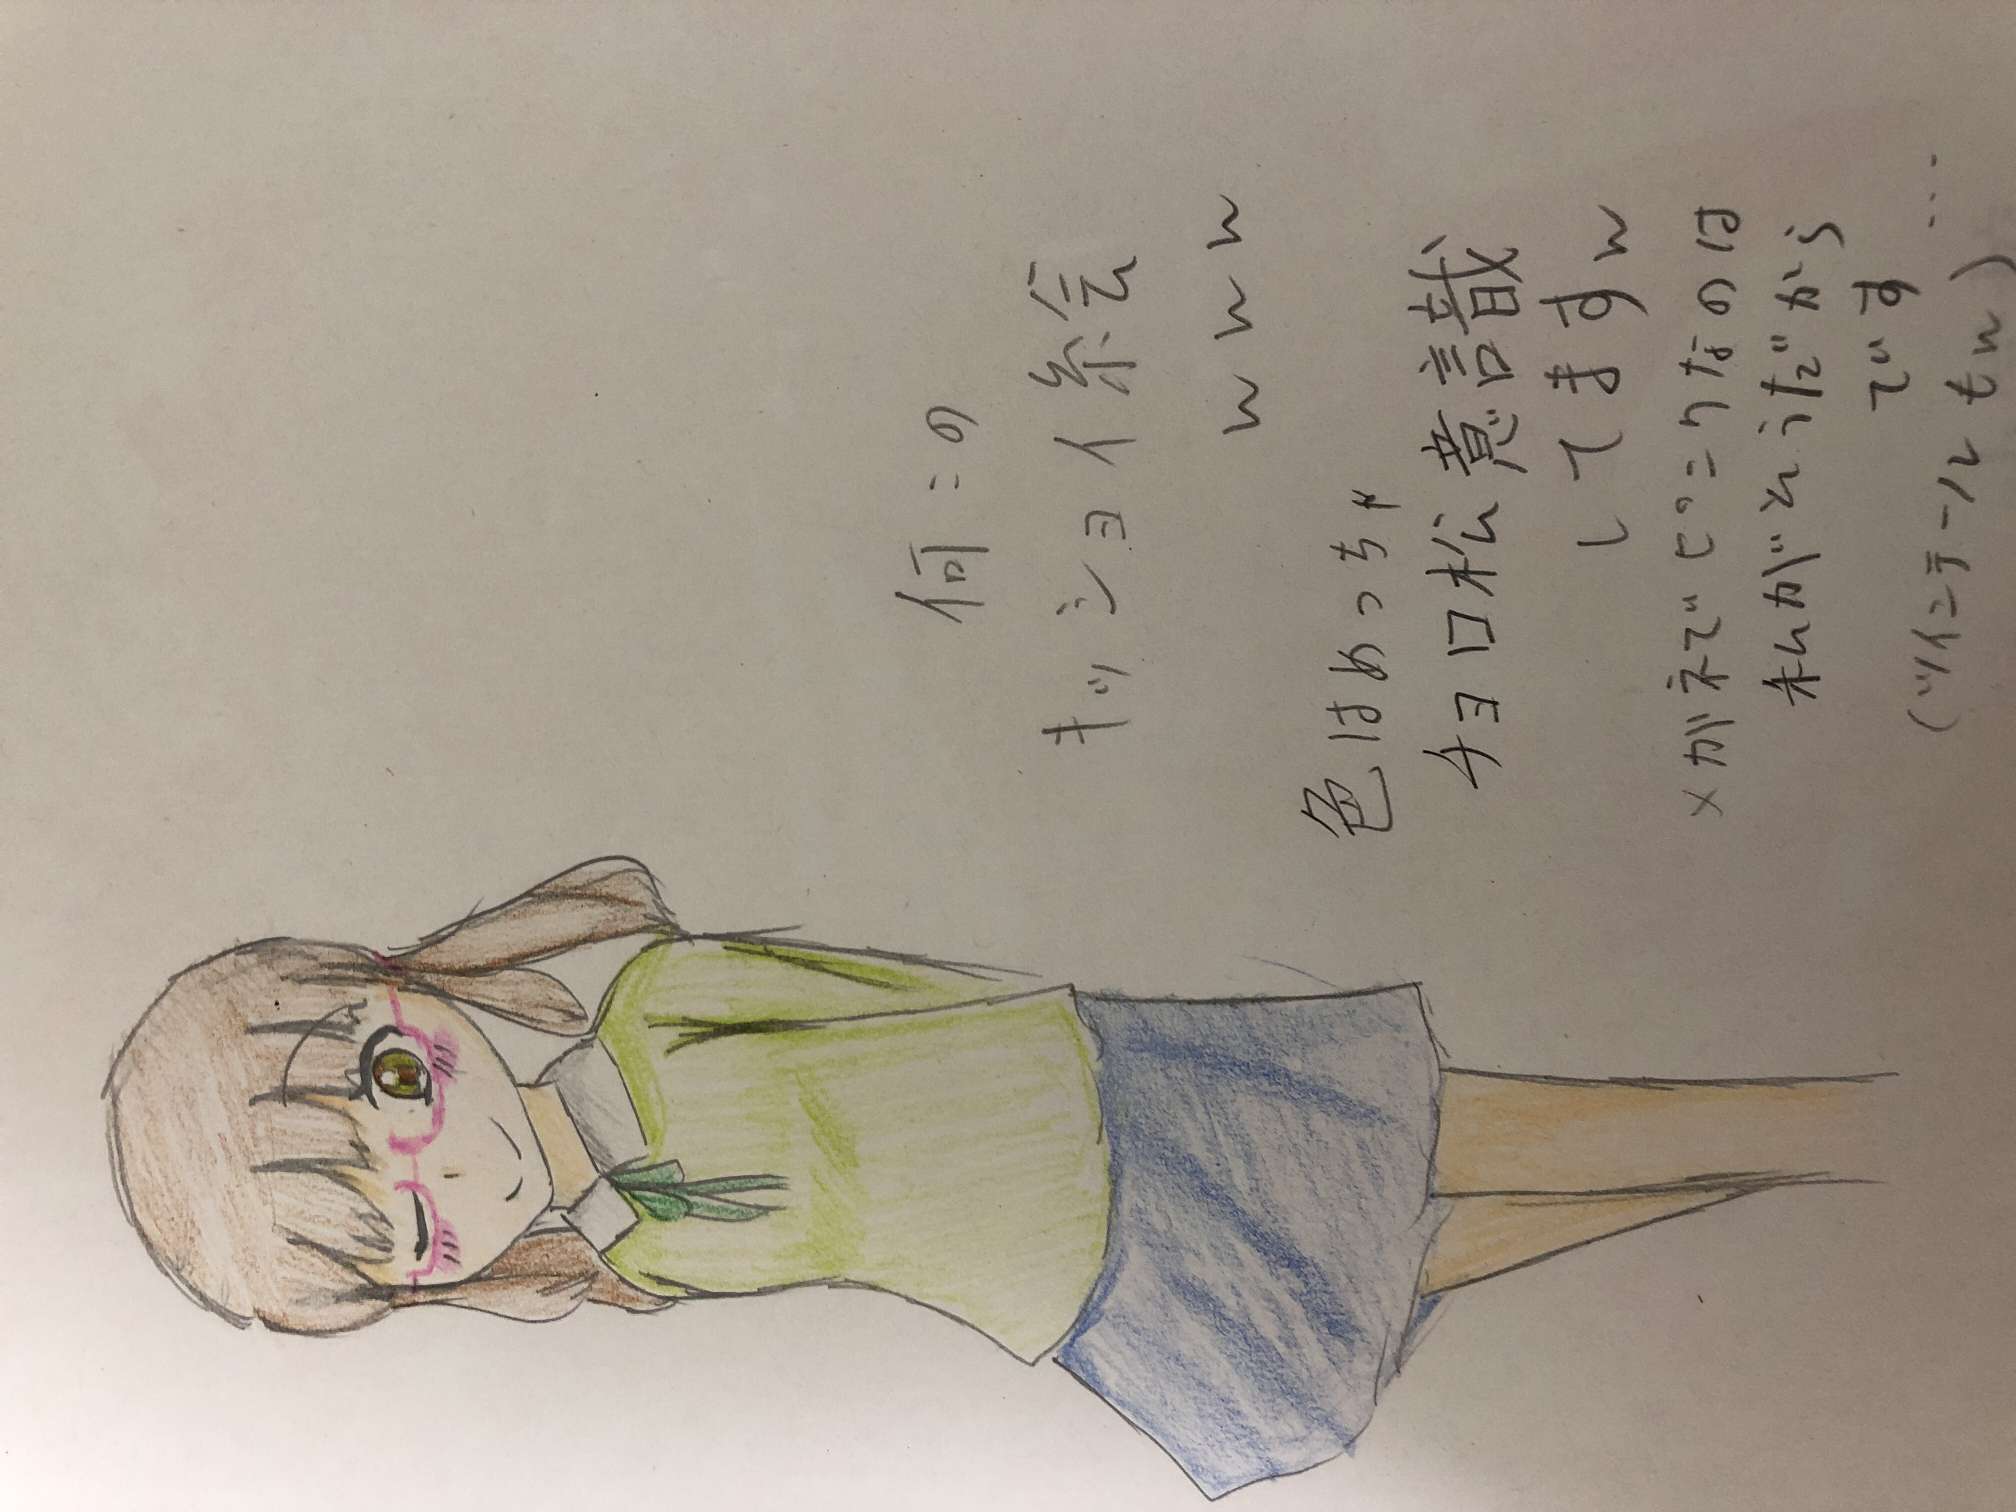 何この
キッショイ絵
www
色はめっちゃ
チョロ松意識
してますw
メガネでピンクなのは
私がそうだから
です
(ツインテールもw)…